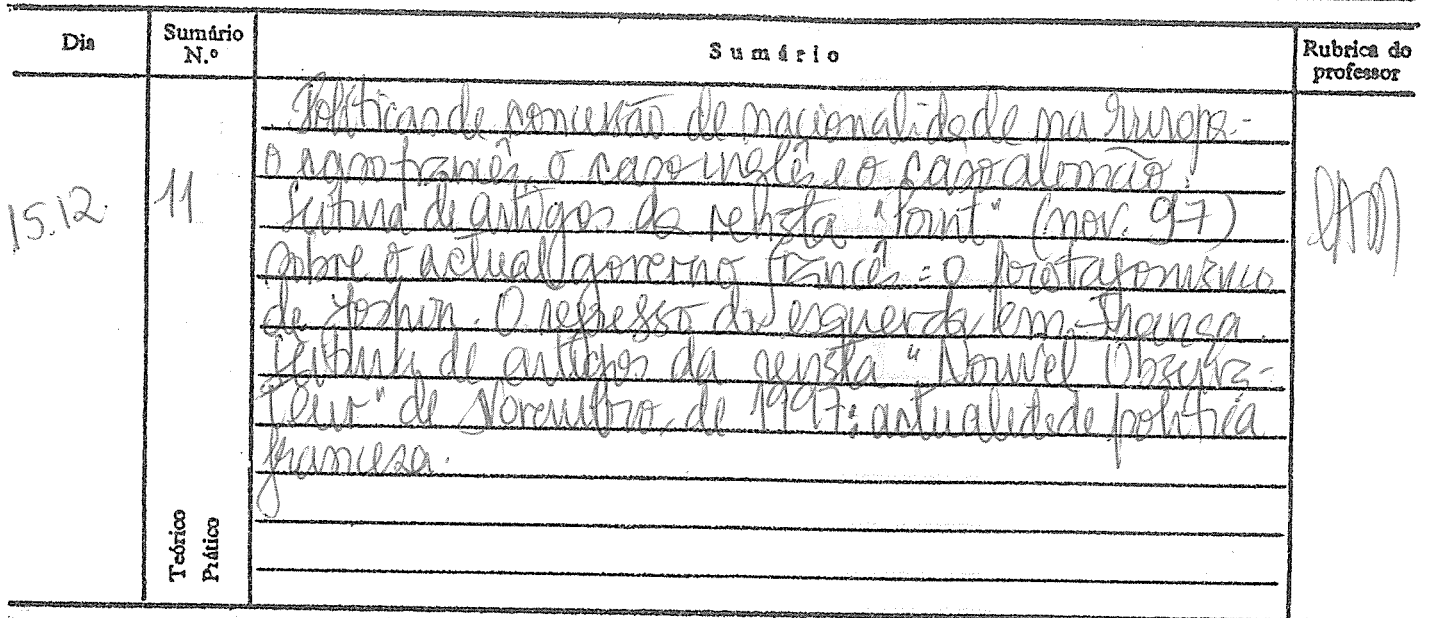 Dia
Sumário N.º
Sumário
Rubrica do professor
15.12
11
Políticas de concessão de nacionalidade na Europa -
o caso francês, o caso inglês e o caso alemão.
Leitura de artigos da revista "Point" (nov. 97)
sobre o actual governo francês: o protagonismo
de Jospin. O regresso da esquerda em França.
Leitura de artigos da revista "Nouvel Observa-
teur" de Novembro de 1997: actualidade política
francesa.
Teórico
Prático